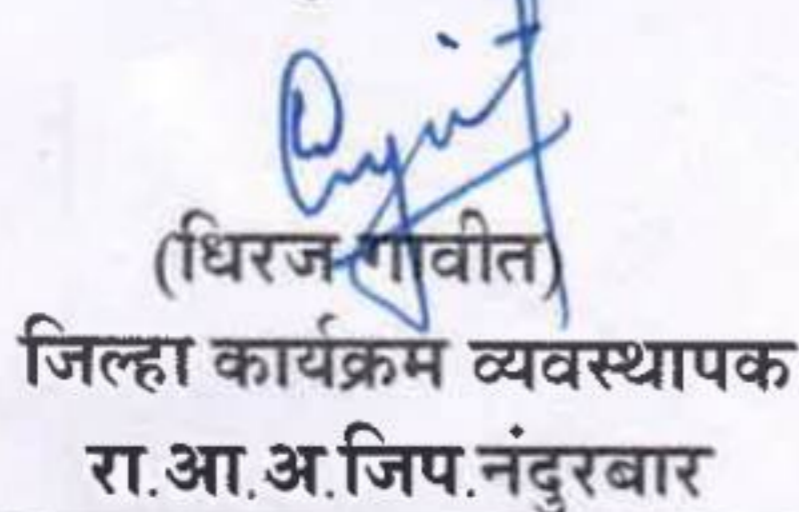 (धिरज गावीत)
जिल्हा कार्यक्रम व्यवस्थापक
रा.आ.अ.जिप.नंदुरबार